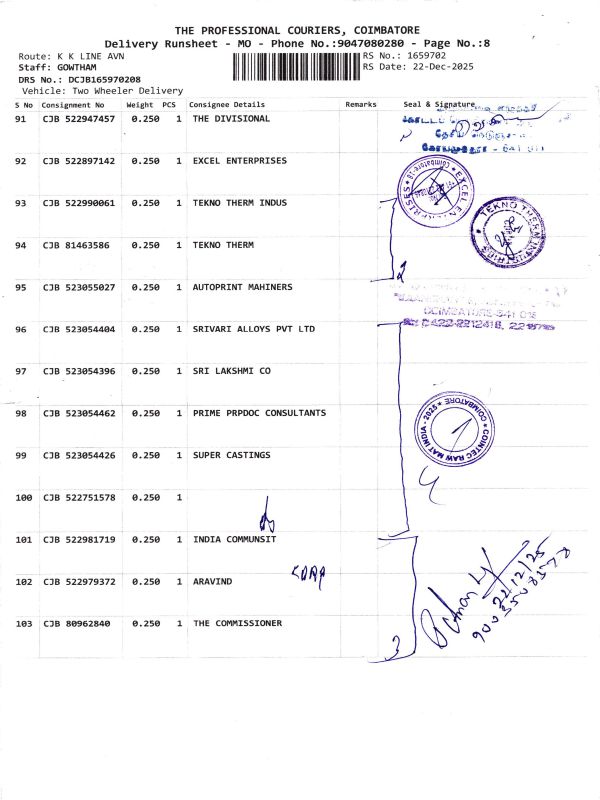 THE PROFESSIONAL COURIERS, COIMBATORE
Delivery Runsheet - MO - Phone No.:9047080280 - Page No.:8
Route: K K LINE AVN RS No.: 1659702
Staff: GOWTHAM RS Date: 22-Dec-2025
DRS No.: DCJB165970208
Vehicle: Two Wheeler Delivery
S No Consignment No Weight PCS Consignee Details Remarks Seal & Signature
91 CJB 522947457 0.250 1 THE DIVISIONAL
கோயமுத்தூர் - 641 011
92 CJB 522897142 0.250 1 EXCEL ENTERPRISES
EXCEL ENTERPRISES
93 CJB 522990061 0.250 1 TEKNO THERM INDUS
TEKNO THERM INDUSTRIES
94 CJB 81463586 0.250 1 TEKNO THERM
2
95 CJB 523055027 0.250 1 AUTOPRINT MAHINERS
COIMBATORE-641 018
96 CJB 523054404 0.250 1 SRIVARI ALLOYS PVT LTD
0422-2212418
97 CJB 523054396 0.250 1 SRI LAKSHMI CO
98 CJB 523054462 0.250 1 PRIME PRPDOC CONSULTANTS
COINTEC RAW MAT INDIA - 2025 COIMBATORE
99 CJB 523054426 0.250 1 SUPER CASTINGS
4
100 CJB 522751578 0.250 1
101 CJB 522981719 0.250 1 INDIA COMMUNSIT
102 CJB 522979372 0.250 1 ARAVIND
22/12/25
103 CJB 80962840 0.250 1 THE COMMISSIONER
3